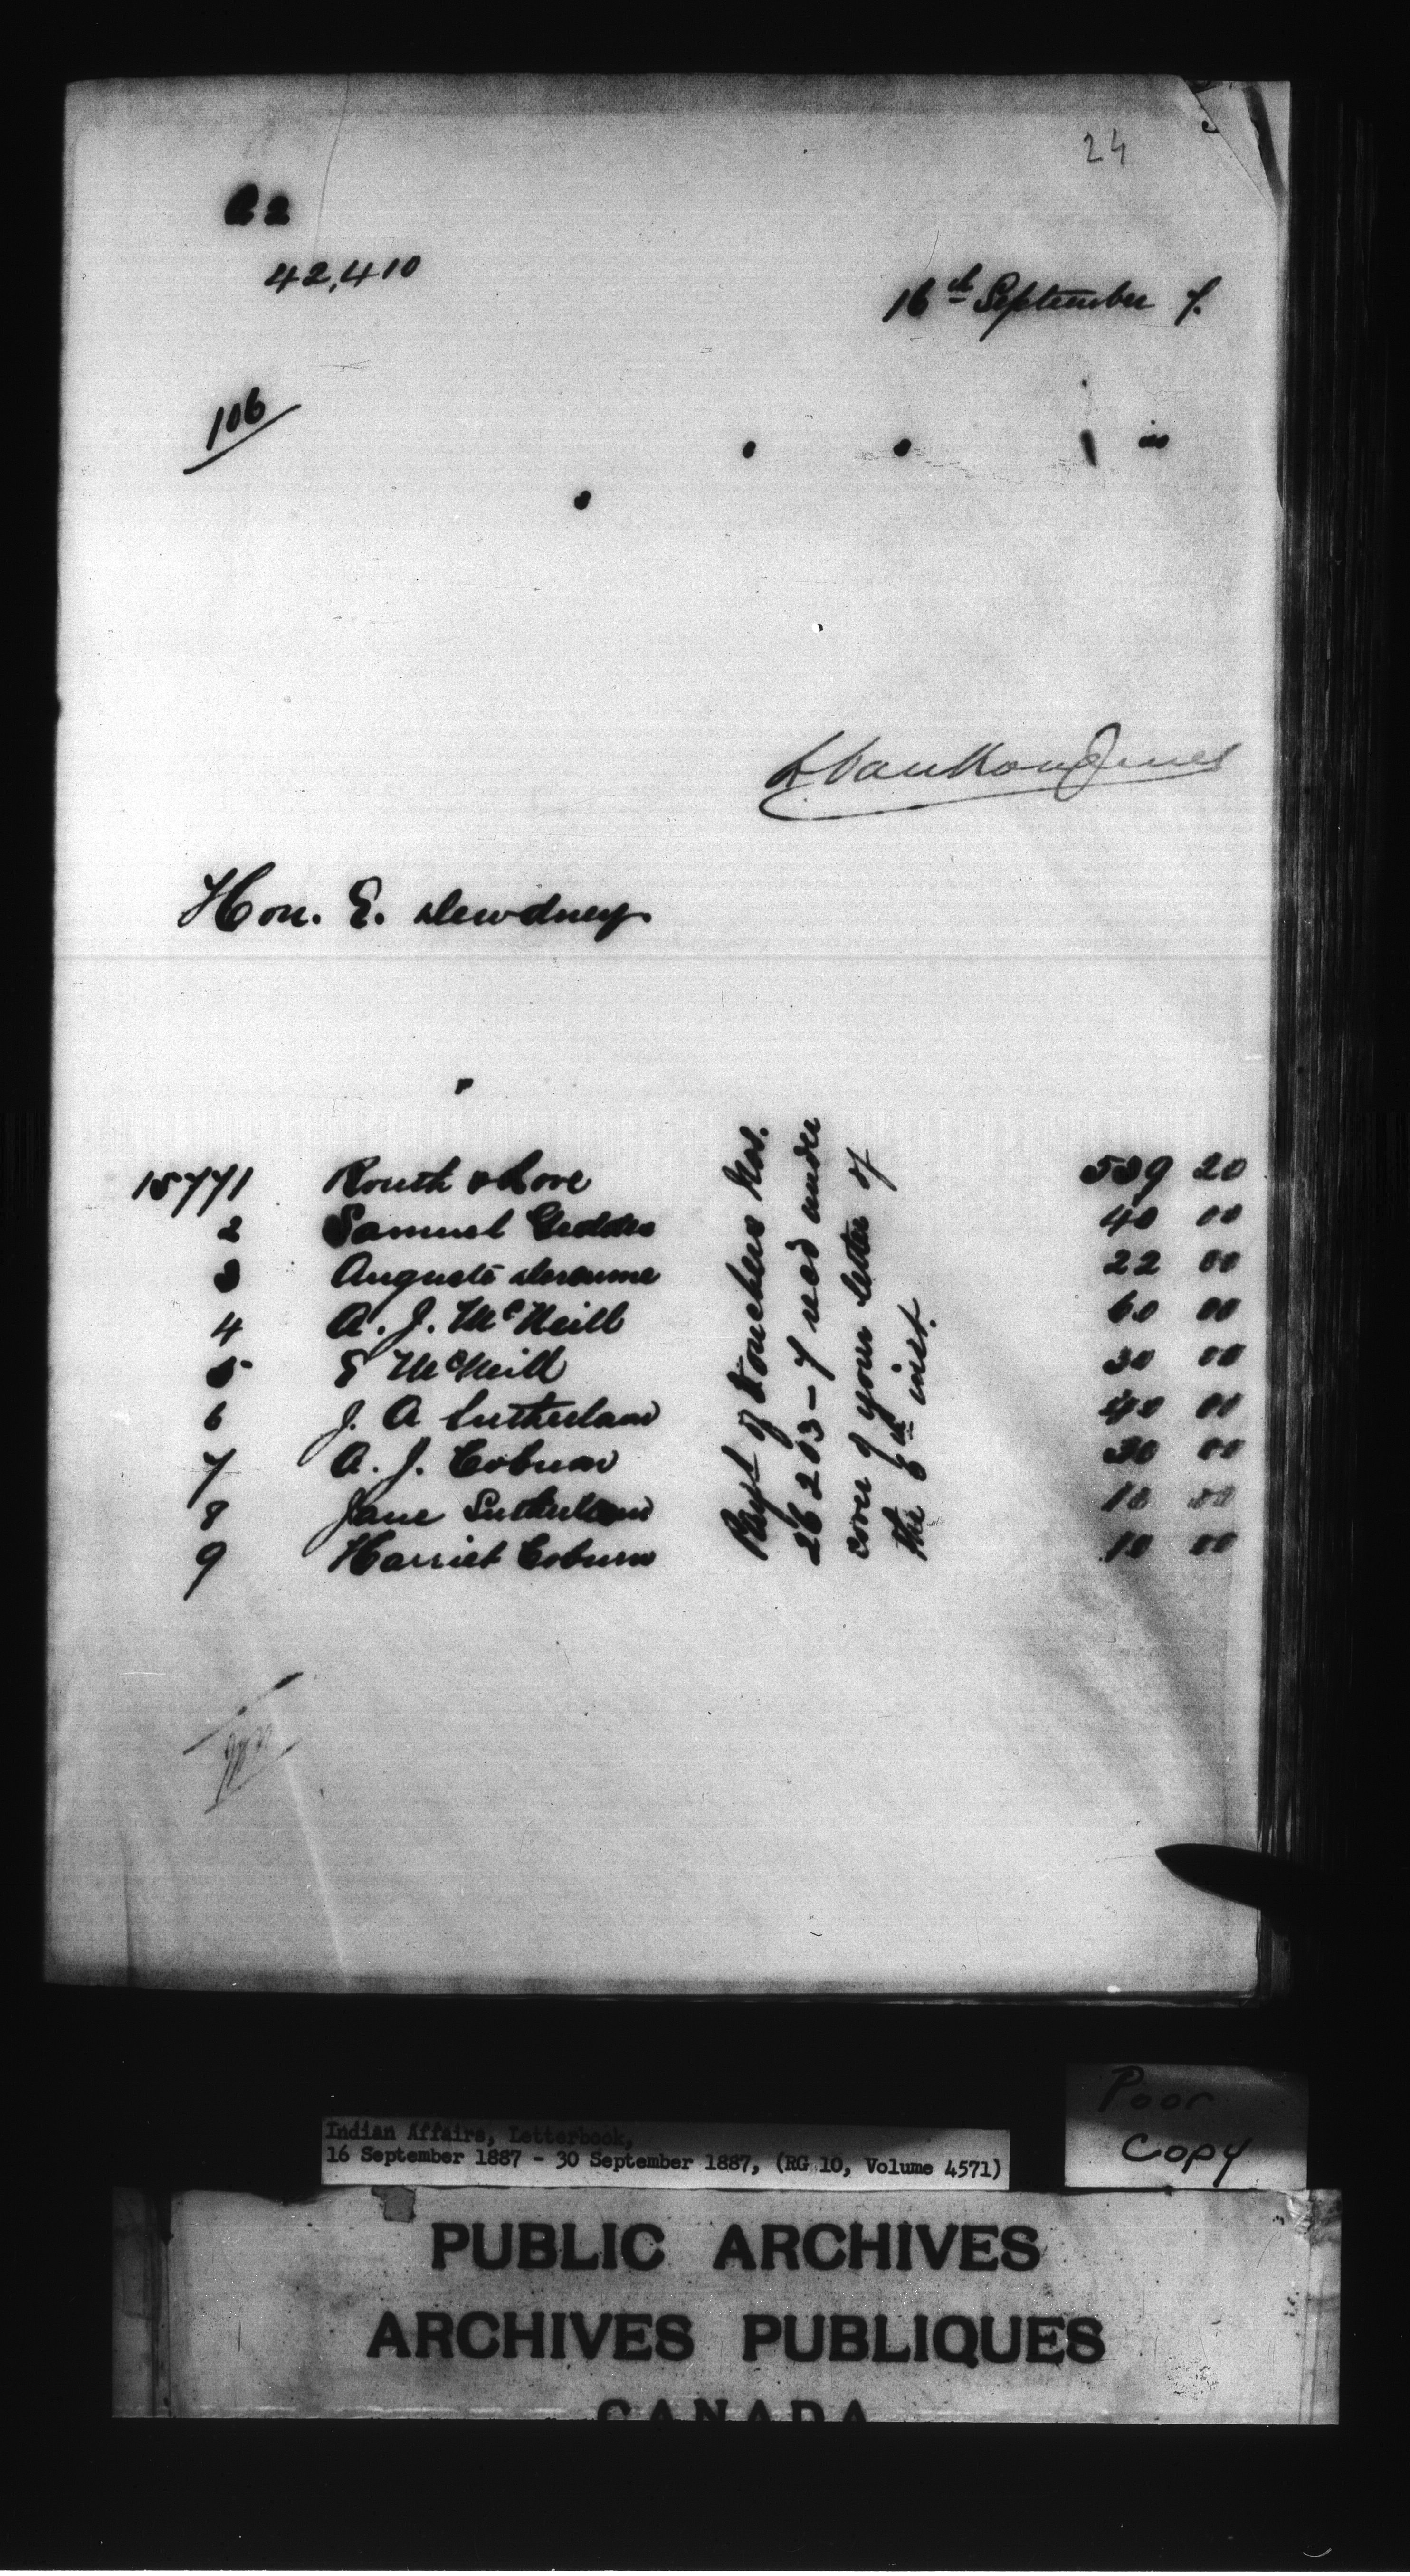 24
42,410
16th September 7.
106
L VanKoughnet
Hon. E. Dewdney
15771 Routh & Love 539 20
2 Samuel Geddes 40 00
3 Auguste 22 00
4 A. J. McNeill 60 00
5 E McNeill 30 00
6 J. A Sutherland 40 00
7 A. J. Coburn 30 00
8 Jane Sutherland 10 00
9 Harriet Coburn 10 00
Payt of Vouchers Nos.
26203-7 recd under
cover of your letter of
the 6th inst.
Poor
Copy
Indian Affairs, Letterbook,
16 September 1887 - 30 September 1887, (RG 10, Volume 4571)
PUBLIC ARCHIVES
ARCHIVES PUBLIQUES
CANADA